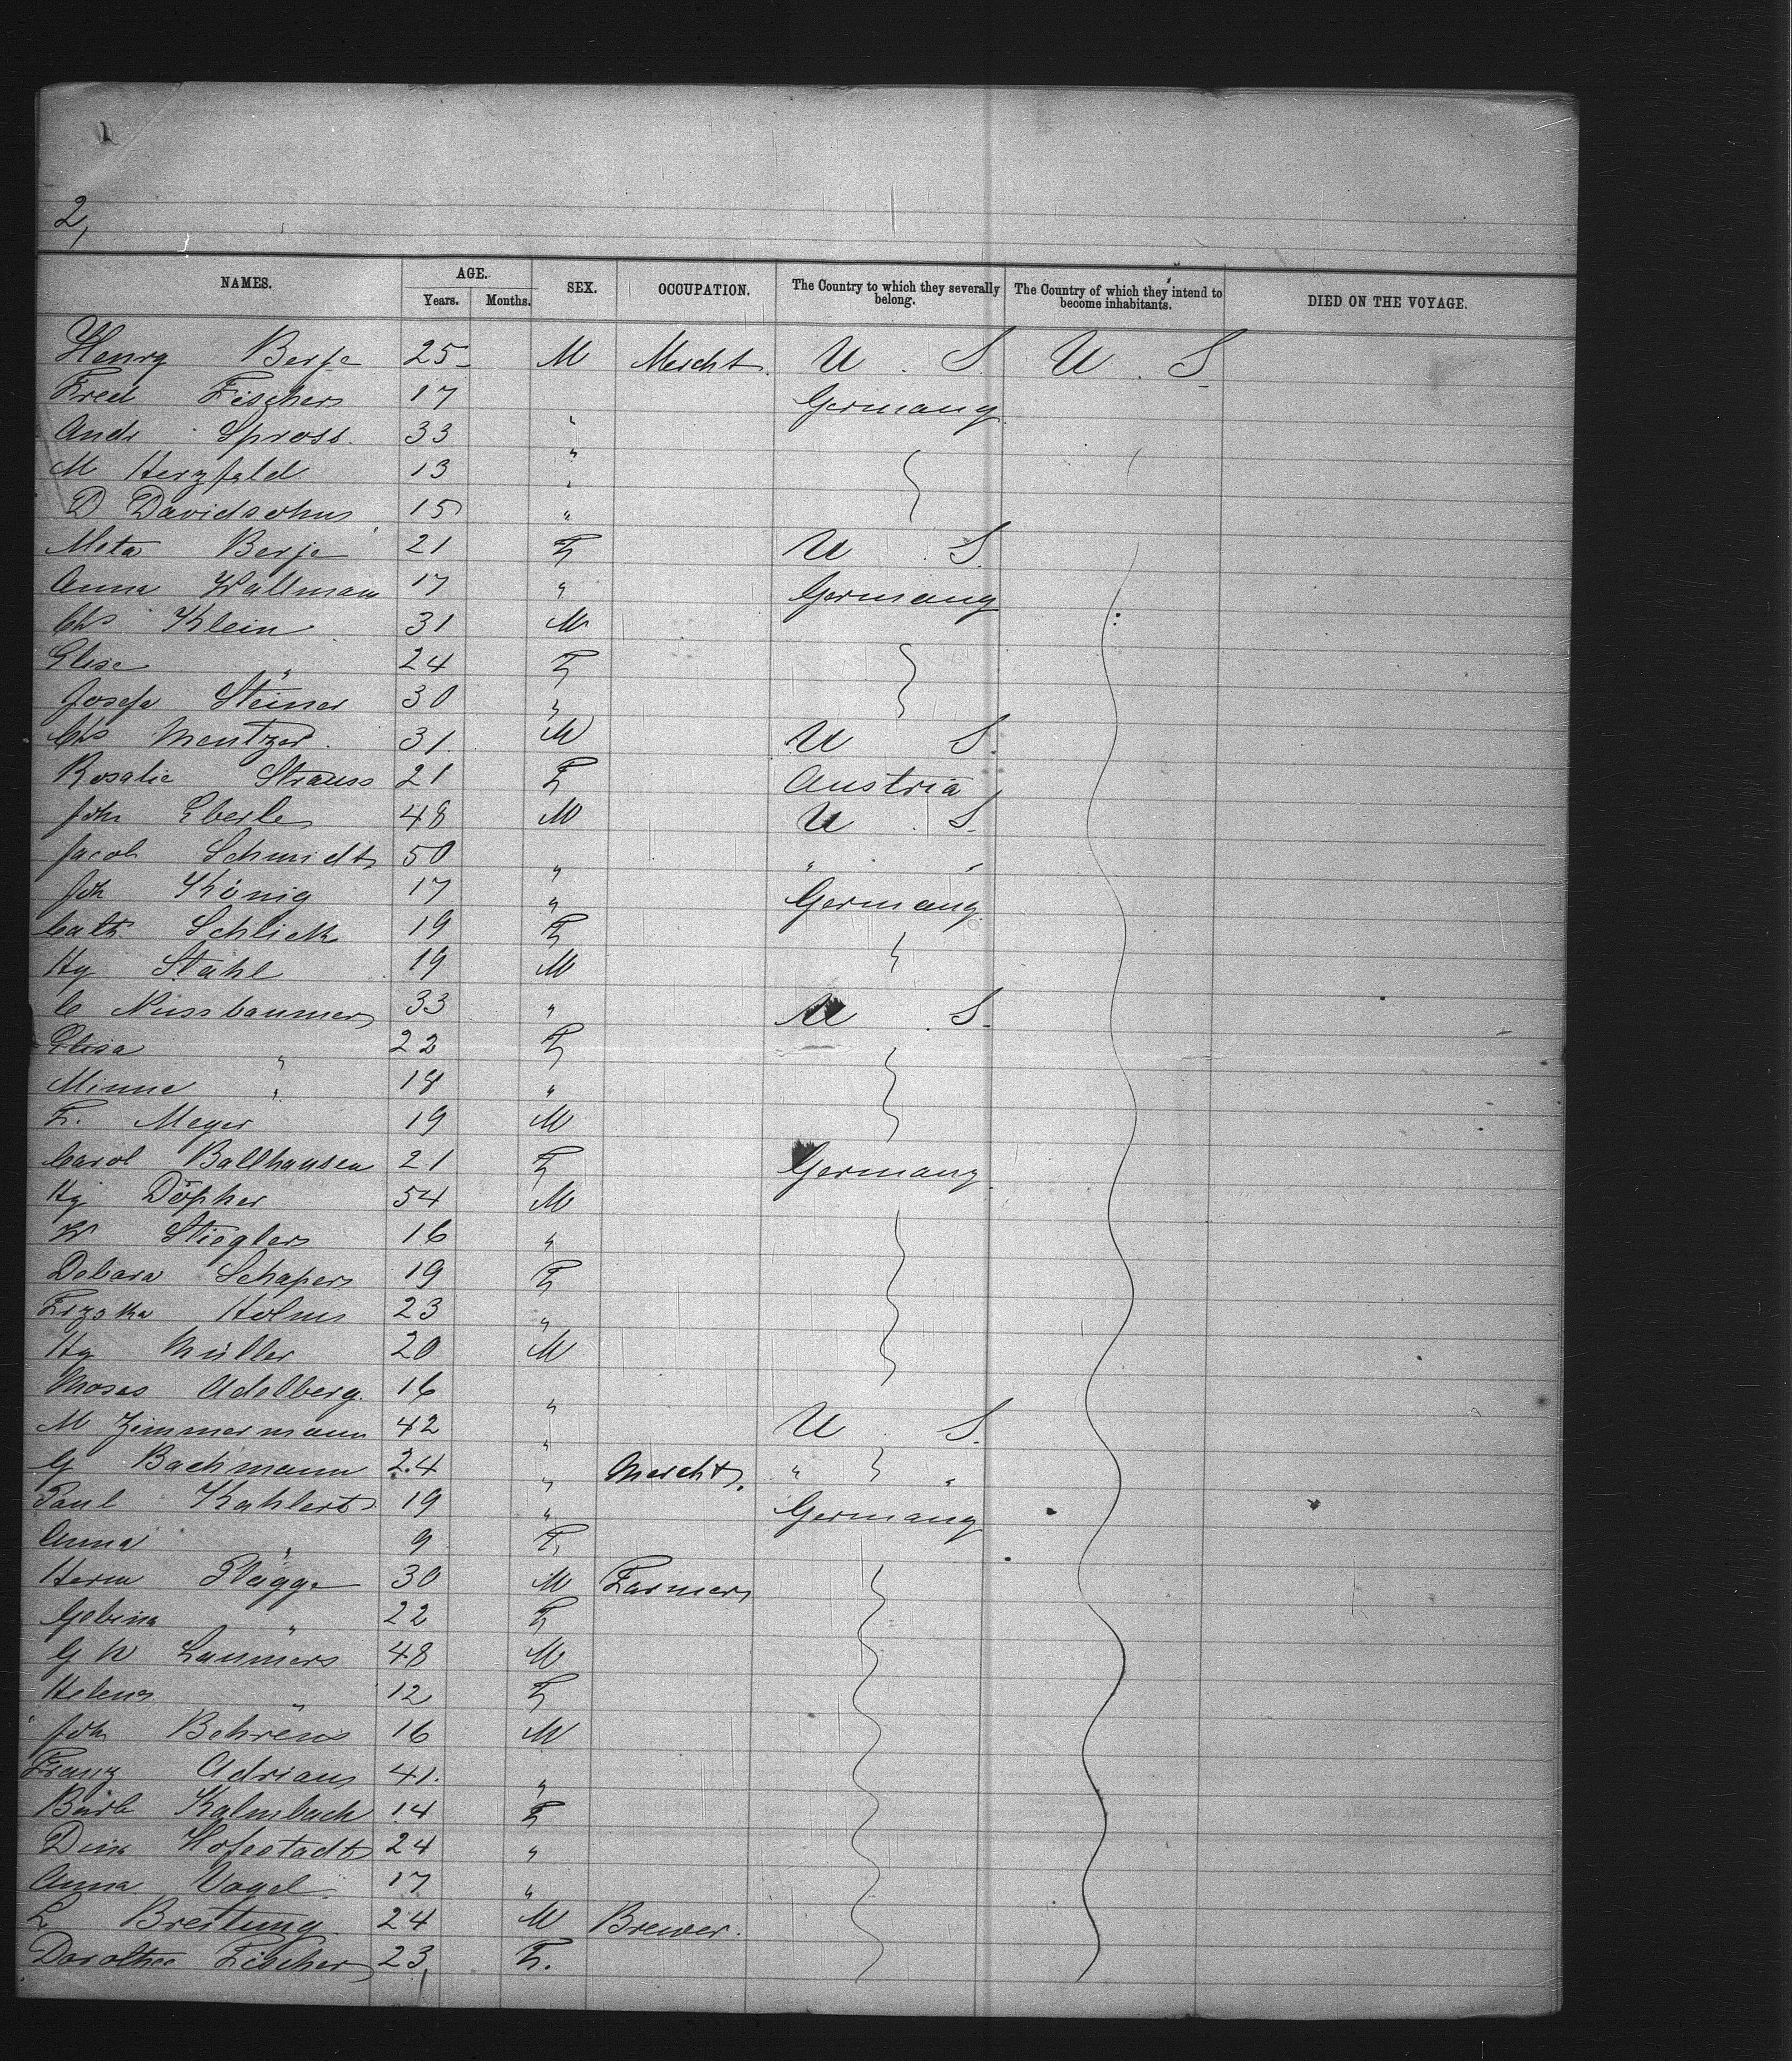 2,
NAMES. AGE. Years. Months. SEX. OCCUPATION. The Country to which they severally belong. The Country of which they intend to become inhabitants. DIED ON THE VOYAGE.
Henry Berje 25 M Mercht. U. S. U. S.
Fred Fischer 17 " Germany
Andr Spross. 33 "
M Herzfeld 13 "
D Davidsohn 15 "
Meta Berje 21 F U S.
Anna Wallmann 17 " Germany
Chs Klein 31 M
Elise " 24 F
Josefa Steiner 30 "
Chs Mentzer. 31. M U S.
Rosalie Strauss 21 F Austria
Joh Eberle 48 M U. S.
Jacob Schmidt 50 " " "
Joh König 17 " Germany.
Cath Schlick 19 F
Hy Stahl 19 M
C Nussbaumer 33 " U. S.
Elisa " 22 F
Minna " 18 "
F. Meyer 19 M
Carol Ballhausen 21 F Germany.
Hy Döpher 54 M
W Stiegler 16 "
Debara Schaper 19 F
Frzska Holm 23 "
Hy Müller 20 M
Moses Adelberg. 16 "
M Zimmermann 42 " U. S.
G Bachmann 24 " Mercht. " "
Paul Kahlert 19 " Germany
Anna " 9 F.
Herm Plagge 30 M Farmer
Gebina " 22 F
G W Lammers 48 M
Helena " 12 F
Joh Behrens 16 M
Franz Adrian 41. "
Barb Kalmbach 14 F
Dina Hofestadt 24 "
Anna Vogel 17 "
L Breitung 24 M Brewer.
Dorothee Fischer 23 F.